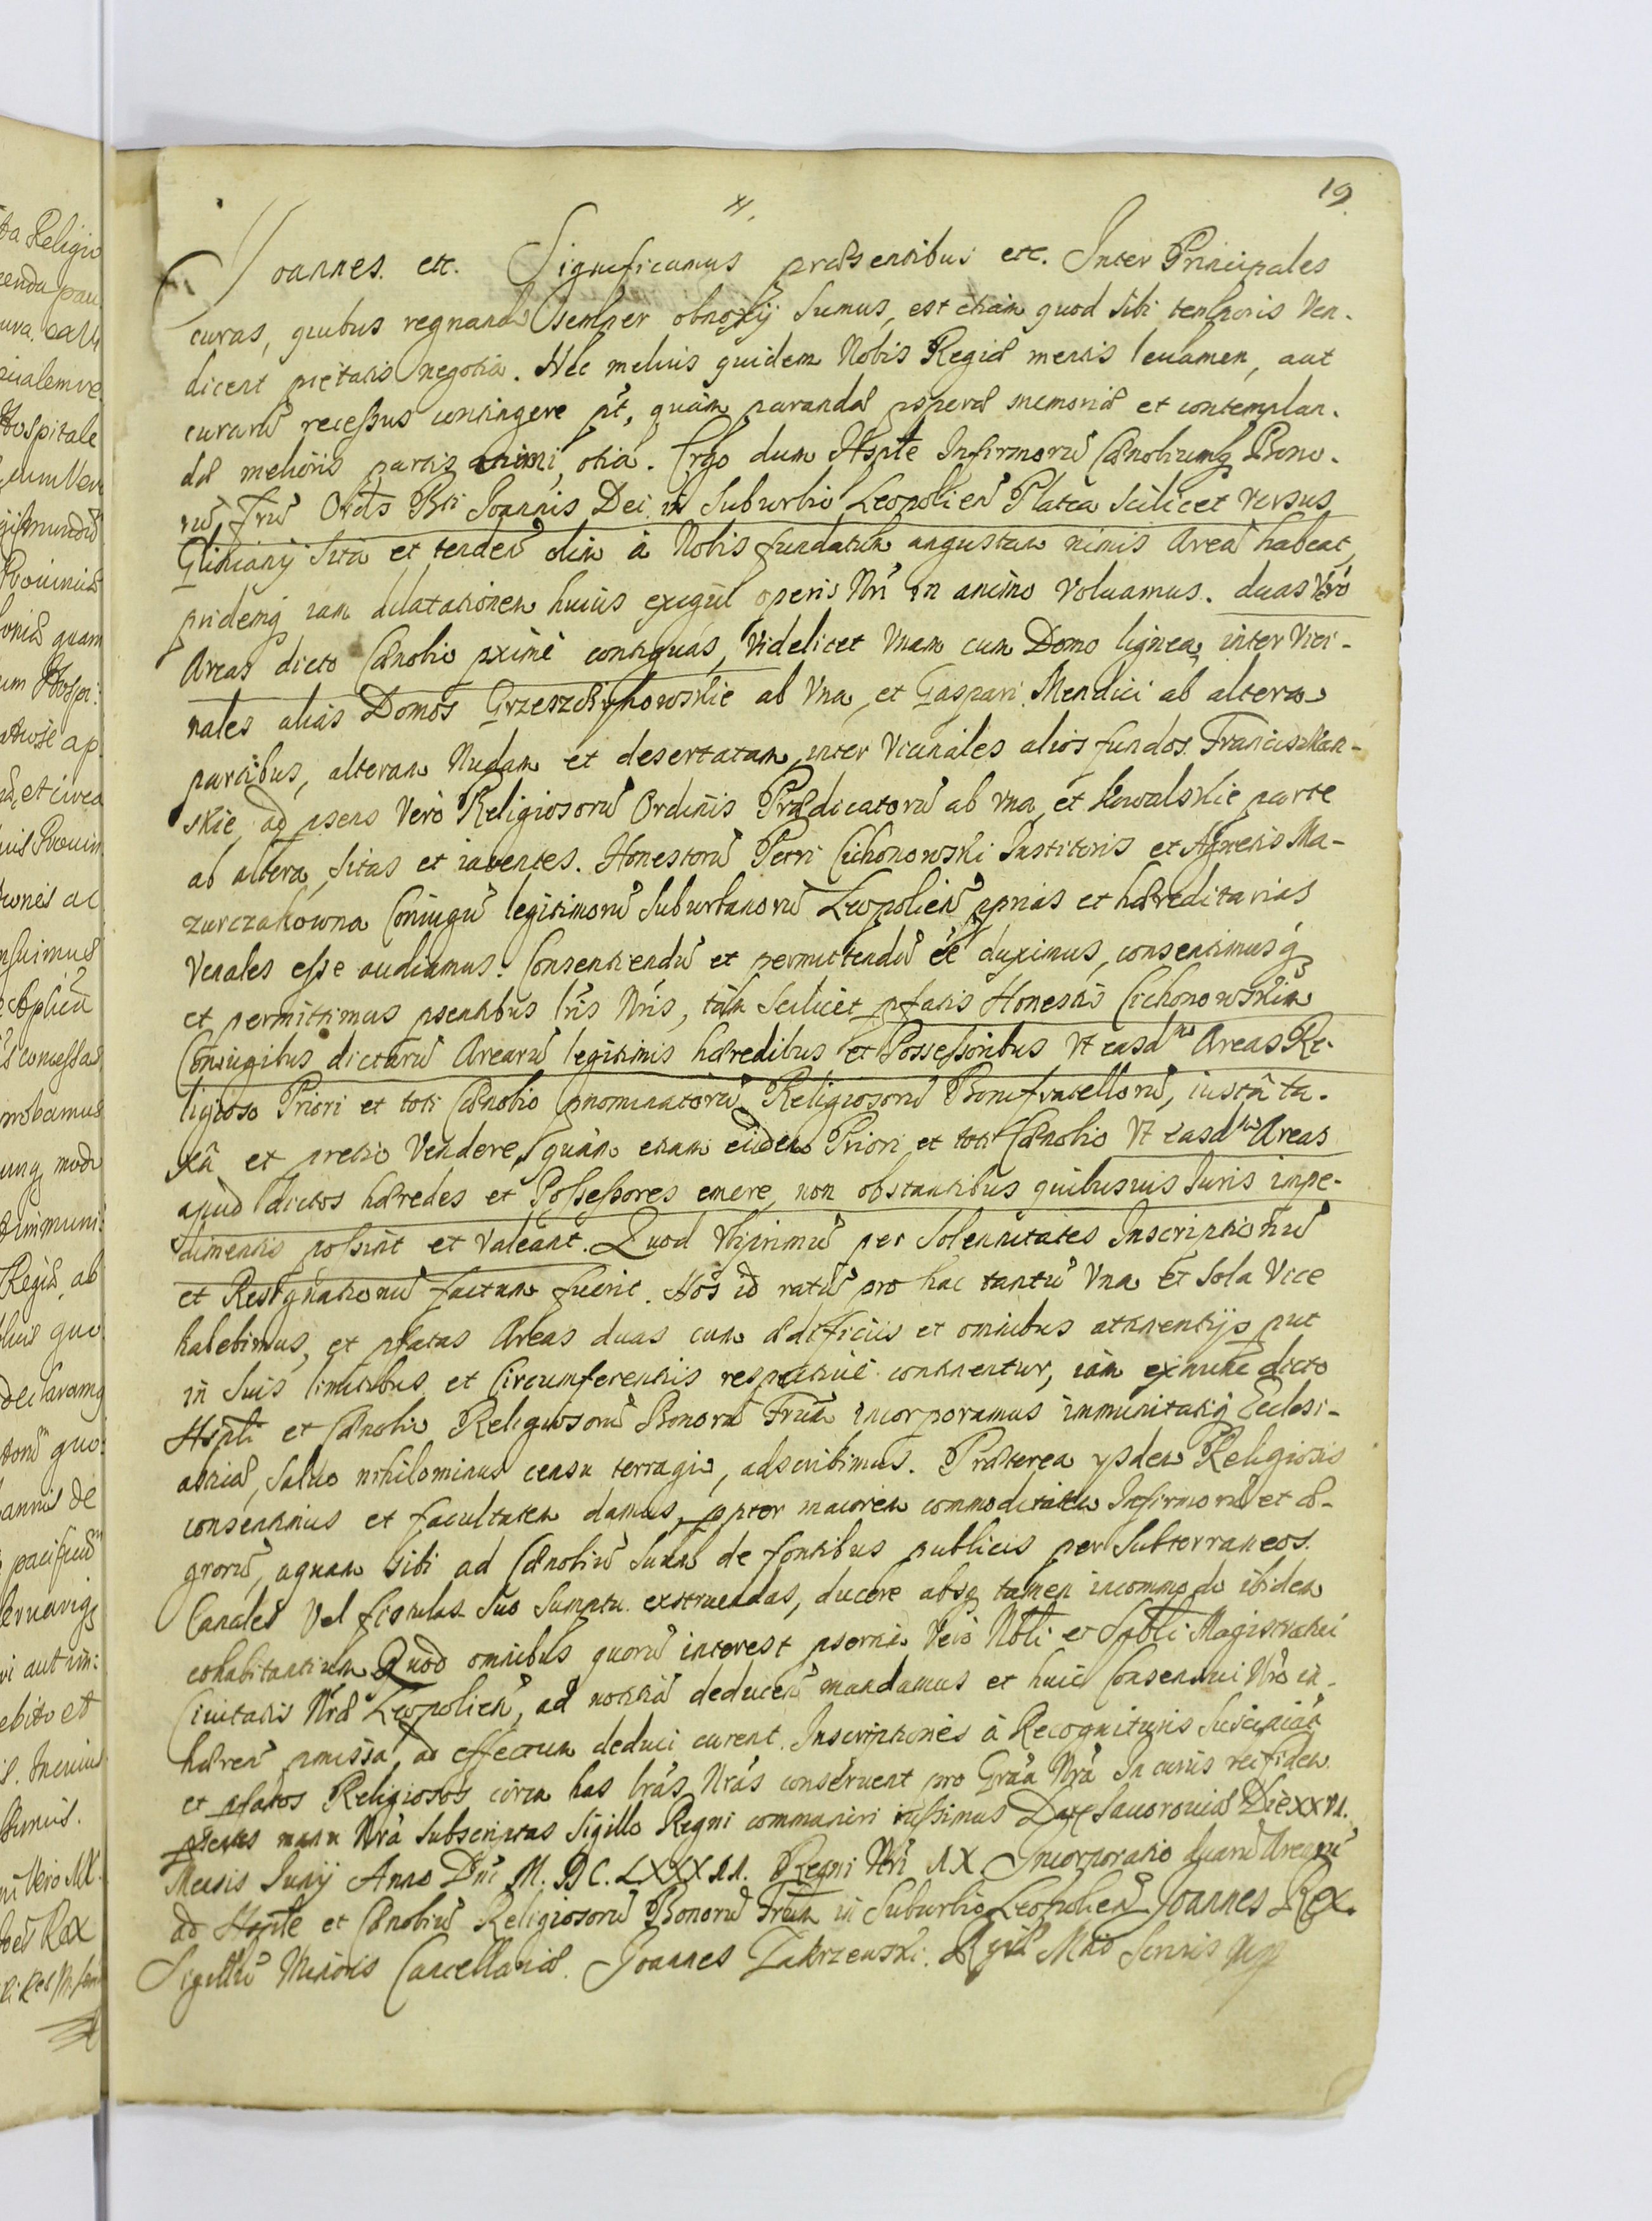 19.
Joannes. etc. Significamus præsentibus etc. Inter Principales
curas, quibus regnando semper obnoxij sumus, est etiam quod sibi temporis Ven-
dicent pietatis negotia. Nec melius quidem Nobis Regiæ mentis leuamen, aut
curarū recessus contingere pt, quàm parandæ psperæ memoriæ et contemplan-
dæ melioris partis animi, otia. Ergo dum Hspte Infirmorū Cænobiumq Bono-
rū Frū Ordis Bti Joannis Dei in Suburbio Leopolien Platea scilicet versus
Gliniany sita et tenden olim à Nobis fundatum angustam nimis Areā habeat,
pridemq iam dilatationem huius exigui operis Nri in animo voluamus. duas Vero
Areas dicto Cænobio pximè contiguas, videlicet Vnam cum Domo lignea, inter Vici-
nales aliàs Domos Grzeszczychowskie ab Vna, et Gaspari Mendici ab altera
partibus, alteram Nudam et desertatam, inter Vicinales alios fundos Franciszkan-
skie, ad psens Verò Religiosorū Ordinis Prædicatorū ab vna, et Kowalskie parte
ab altera, sitas et iacentes. Honestorū Petri Cichonowski Institoris et Agnetis Ma-
zurczakowna Coniugū legitimorū Suburbanorū Leopolien pprias et hæreditarias
Venales esse audiamus. Consentiendū et permittendū èè duximus, consentimusq
et permittimus psentibus lris Nris, tàm scilicet pfatis Honestis Cichonowskim
Coniugibus dictarū Arearū legitimis hæredibus et Possessoribus Vt easdm Areas Re-
ligioso Priori et toti Cænobio pnominatorū Religiosorū Bonifratellorū, iustâ ta-
xâ et pretio Vendere, quàm etiam eidem Priori et toti Cænobio Vt easdm Areas
apud dictos hæredes et Possessores emere, non obstantibus quibusuis Iuris impe-
dimentis possint et Valeant. Quod vbiprimū per Solennitates Inscriptionū
et Resignationū factum fuerit. Nos id ratū pro hac tantū Vna et sola Vice
habebimus, et pfatas Areas duas cum ædificiis et omnibus attinentijs put
in suis limitibus et Circumferentiis respectiuè continentur, iàm exnunc dicto
Hspti et Cænobio Religiosorū Bonorū Frum incorporamus immunitatiq Ecclesi-
asticæ, saluo nihilominus censu terragio, adscribimus. Præterea ysdem Religiosis
consentimus et facultatem damus, ppter maiorem commoditatem Infirmorū et æ-
grorū, aquam sibi ad Cænobiū suum de fontibus publicis per Subterraneos
Canales Vel fistulas suo sumptu exstruendas, ducere absq tamen incommodo ibidem
cohabitantium. Quod omnibus quorū interest psertim Verò Nbli et Spbli Magistratui
Ciuitatis Nræ Leopolien, ad notitiā deducen mandamus et huic Consensui Nro in-
hæren pmissa ad effectum deduci curent. Inscriptiones à Recognituris suscipian
et pfatos Religiosos circa has lras Nras conseruent pro Gràa Nrà In cuius rei fidem
psentes manu Nrà subscriptas Sigillo Regni communiri iussimus Dat Jauorouiæ Die XXVI.
Mensis Iunij Anno Dni M. DC. LXXXII. Regni Nri IX Incorporatio duarū Arearū
ad Hspte et Cænobiū Religiosorū Bonorū Frum in Suburbio Leopolien Joannes Rex.
Sigillū Minoris Cancellariæ. Joannes Zakrzewski. Rgiæ Mtis Sctris mpp